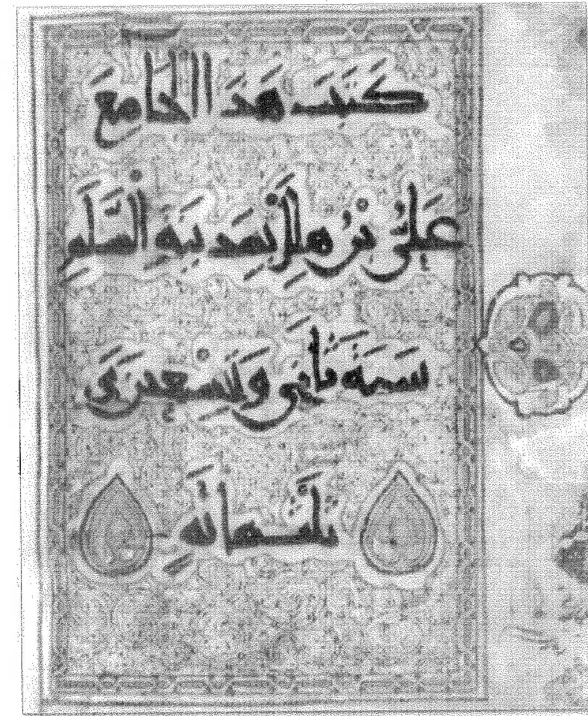 كتب هذا الجامع
علي بن هلال بمدينة السلم
سنة وتسعين
ثلثمائة